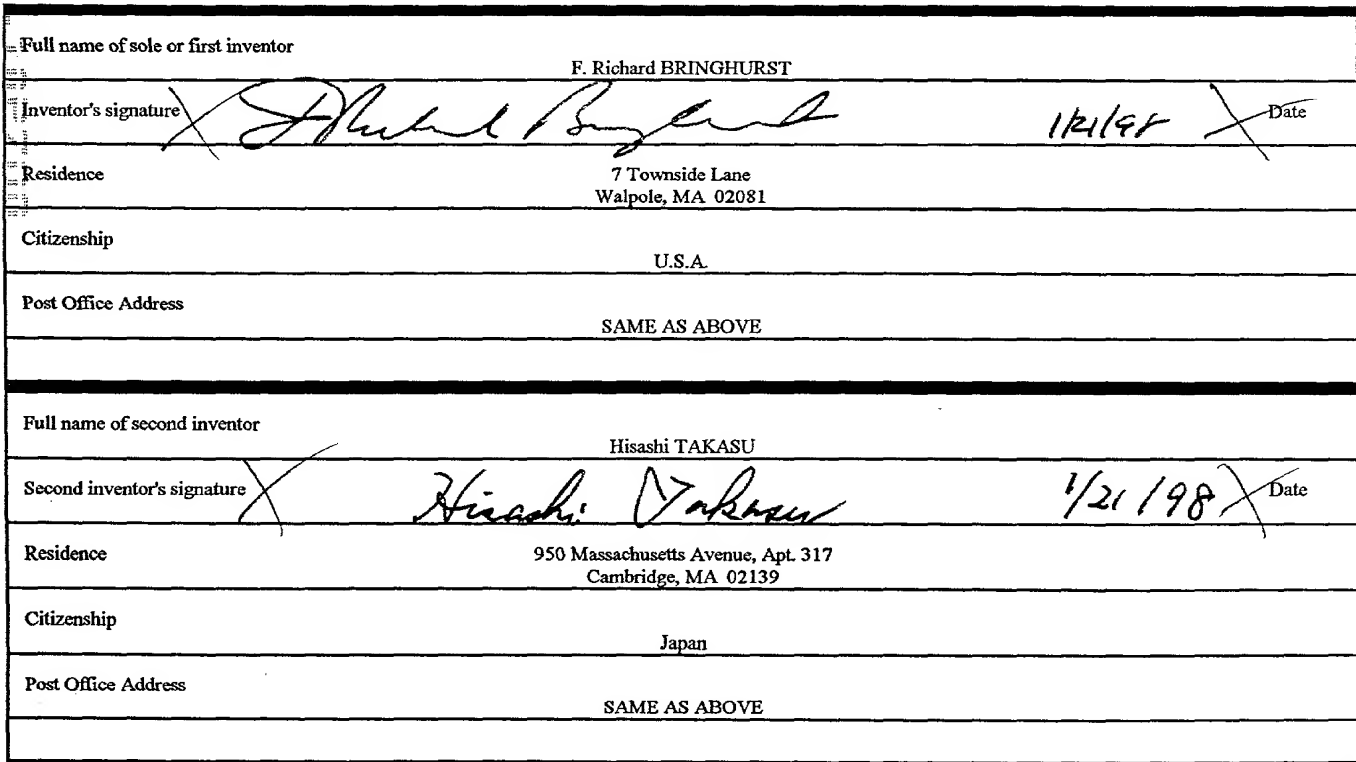 Full name of sole or first inventor
F. Richard BRINGHURST
Inventor's signature F Richard Bringhurst 1/21/98 Date
Residence
7 Townside Lane
Walpole, MA 02081
Citizenship
U.S.A.
Post Office Address
SAME AS ABOVE
Full name of second inventor
Hisashi TAKASU
Second inventor's signature Hisashi Takasu 1/21/98 Date
Residence
950 Massachusetts Avenue, Apt. 317
Cambridge, MA 02139
Citizenship
Japan
Post Office Address
SAME AS ABOVE